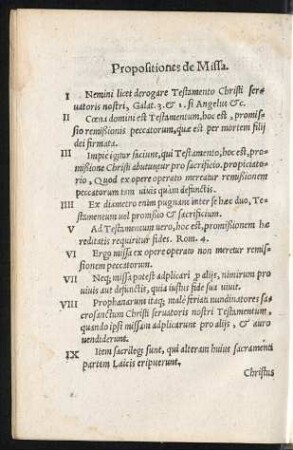 Propositiones de Missa.
I Nemini licet derogare Testamento Christi ser⸗
uatoris nostri, Galat. 3. & 1. si Angelus &c.
II Cœna domini est Testamentum, hoc est, promis⸗
sio remissionis peccatorum, quæ est per mortem filij
dei firmata.
III Impie igitur faciunt, qui Testamento, hoc est, pro⸗
missione Christi abutuntur pro sacrificio. propiciato⸗
rio, Quod ex opere operato mereatur remissionem
peccatorum tam uiuis quàm defunctis.
IIII Ex diametro enim pugnant inter se hæc duo, Te⸗
stamentum uel promissio & sacrificium.
V Ad Testamentum uero, hoc est, promissionem hæ
reditatis requiritur fides. Rom. 4.
VI Ergo missa ex opere operato non meretur remis⸗
sionem peccatorum.
VII Neq; missa potest adplicari p alijs, nimirum pro
uiuis aut defunctis, quia iustus fide sua uiuit.
VIII Prophanarunt itaq; malè feriati nundinatores sa
crosanctum Christi seruatoris nostri Testamentum,
quando ipsi missam adplicarunt pro alijs, & auro
uendiderunt.
IX Item sacrilegi sunt, qui alteram huius sacramenti
partem Laicis eripuerunt.
Christus